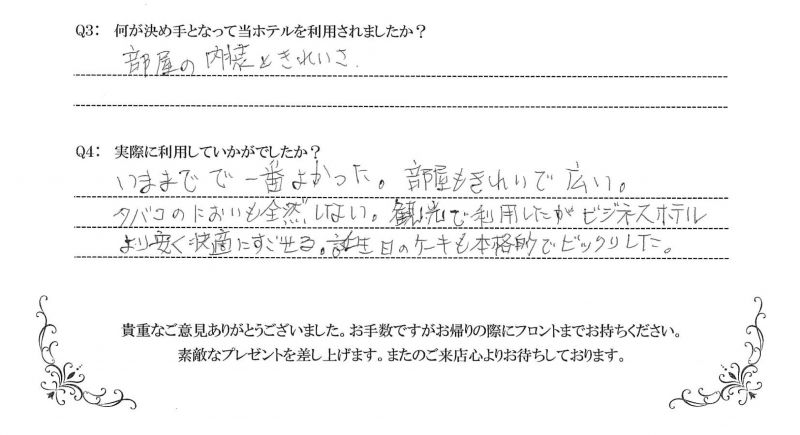 Q3: 何が決め手となって当ホテルを利用されましたか？
部屋の内装ときれいさ.
Q4: 実際に利用していかがでしたか？
いままでで一番よかった。部屋もきれいで広い。
タバコのにおいも全然しない。観光で利用したがビジネスホテル
より安く快適にすごせる。誕生日のケーキも本格的でビックリした。
貴重なご意見ありがとうございました。お手数ですがお帰りの際にフロントまでお持ちください。
素敵なプレゼントを差し上げます。またのご来店心よりお待ちしております。